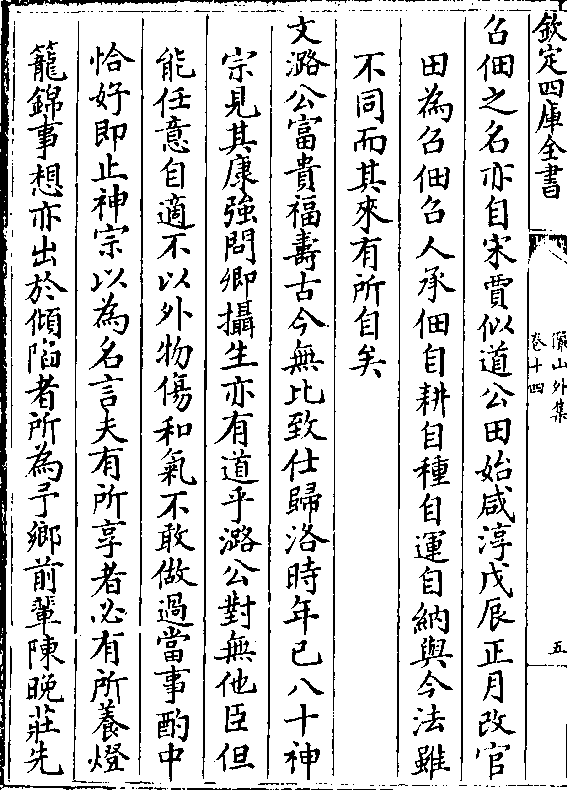 欽定四庫全書
儼山外集
卷十四
五
召佃之名亦自宋賈似道公田始咸淳戊辰正月改官
田為召佃召人承佃自耕自種自運自納與今法雖
不同而其來有所自矣
文潞公富貴福壽古今無比致仕歸洛時年已八十神
宗見其康強問卿攝生亦有道乎潞公對無他臣但
能任意自適不以外物傷和氣不敢做過當事酌中
恰好即止神宗以為名言夫有所享者必有所養燈
籠錦事想亦出於傾陷者所為予鄉前輩陳晚莊先